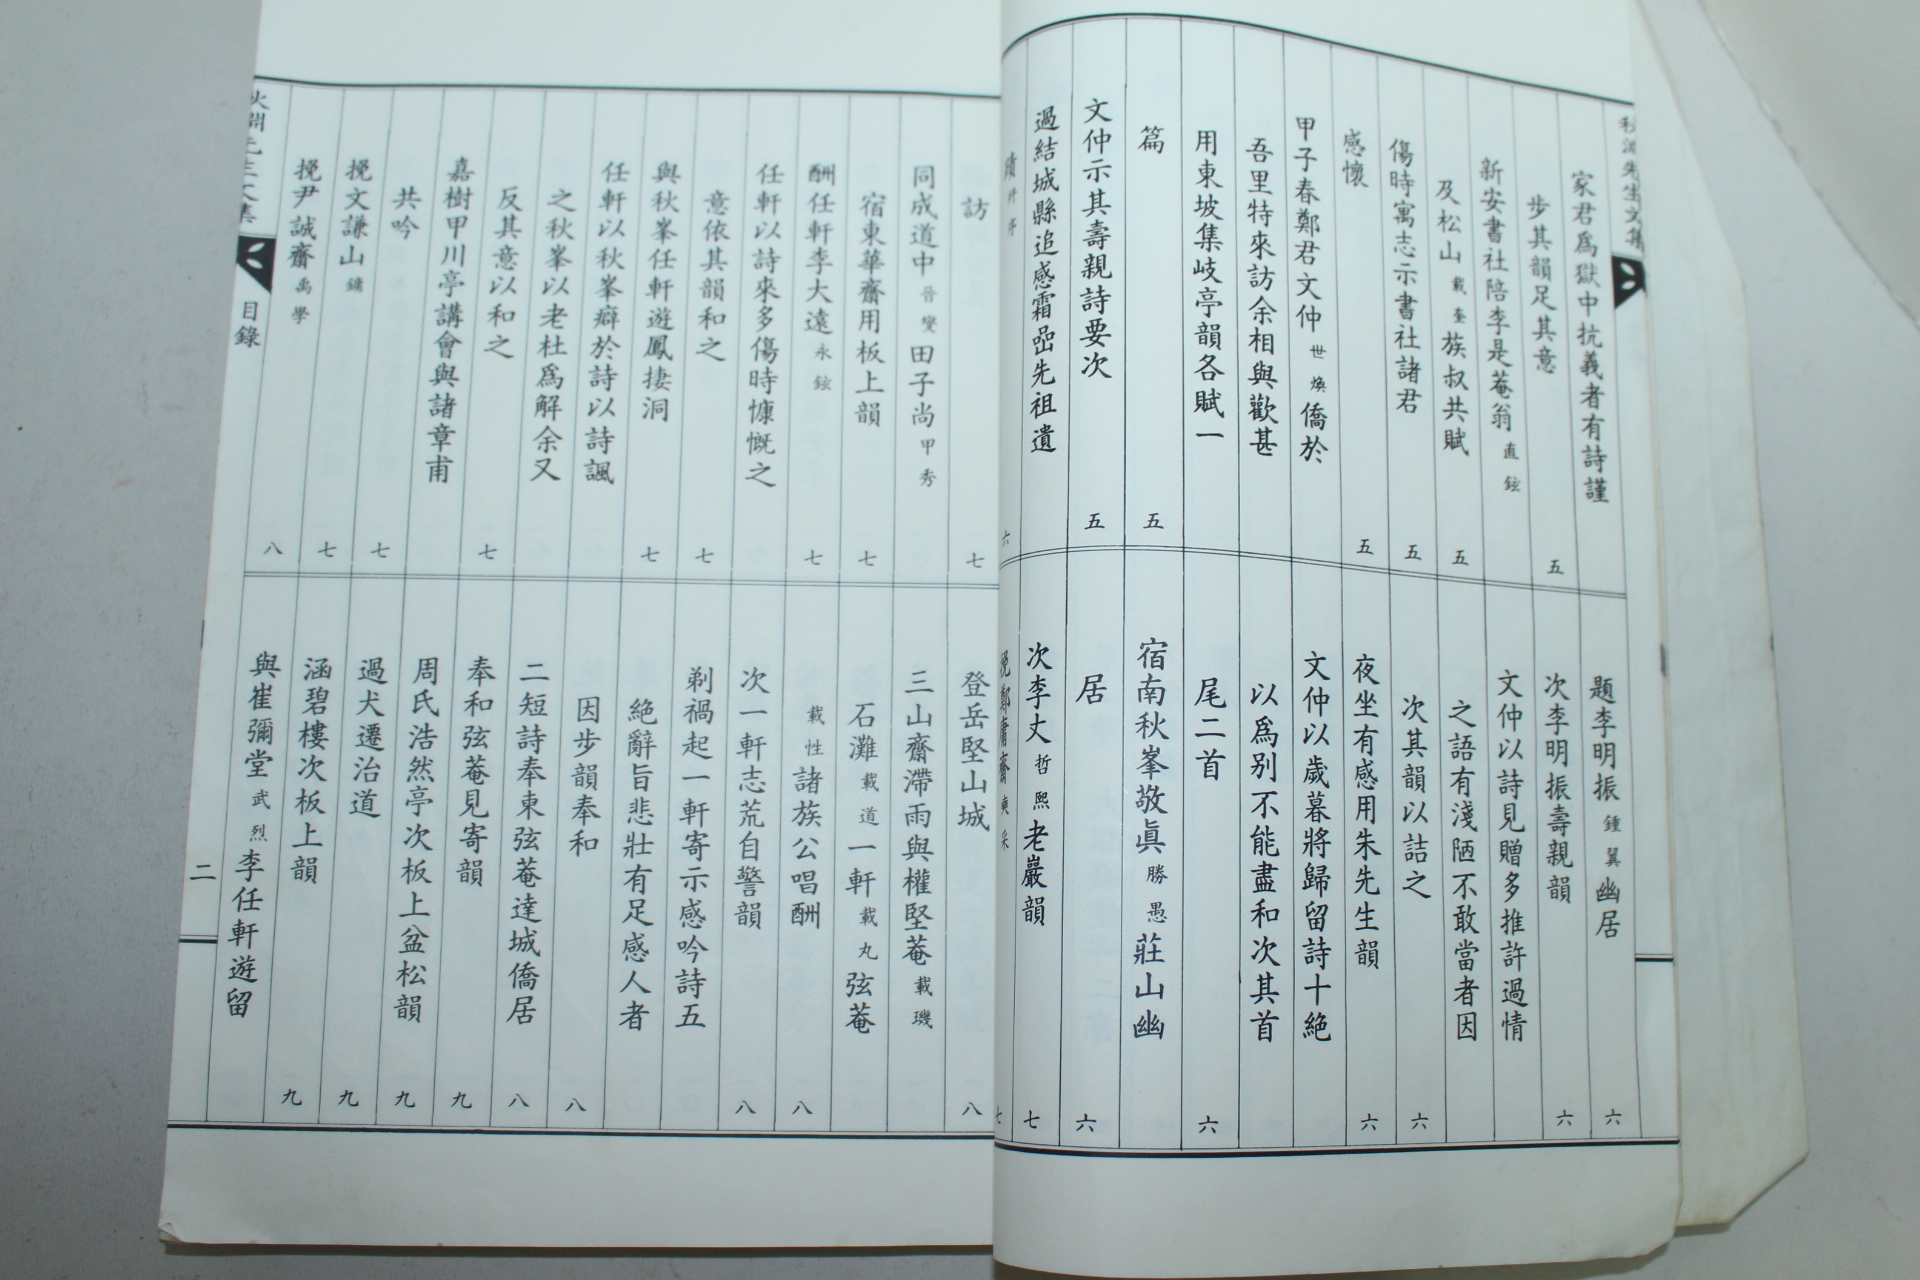 家君爲獄中抗義者有詩謹
步其韻足其意 五
新安書社陪李是菴翁直鉉
及松山載奎族叔共賦 五
傷時寓志示書社諸君 五
感懷 五
甲子春鄭君文仲世煥僑於
吾里特來訪余相與歡甚
用東坡集岐亭韻各賦一
篇 五
文仲示其壽親詩要次 五
過結城縣追感霜嵒先祖遺
六
題李明振鍾翼幽居 六
次李明振壽親韻 六
文仲以詩見贈多推許過情
之語有淺陋不敢當者因
次其韻以詰之 六
夜坐有感用朱先生韻 六
文仲以歲暮將歸留詩十絶
以爲別不能盡和次其首
尾二首 六
宿南秋峯敬眞勝愚莊山幽
居 六
次李丈哲熙老巖韻 七
挽鄭庸齋 七
訪 七
同成道中晉燮田子尚甲秀
宿東華齋用板上韻 七
酬任軒李大遠永鉉 七
任軒以詩來多傷時慷慨之
意依其韻和之 七
與秋峯任軒遊鳳捿洞 七
任軒以秋峯癖於詩以詩諷
之秋峯以老杜爲解余又
反其意以和之 七
嘉樹甲川亭講會與諸章甫
共吟 七
挽文謙山鏞 七
挽尹誠齋禹學 八
登岳堅山城 八
三山齋滯雨與權堅菴載璣
石灘載道一軒載丸弦菴
載性諸族公唱酬 八
次一軒志荒自警韻 八
剃禍起一軒寄示感吟詩五
絶辭旨悲壯有足感人者
因步韻奉和 八
二短詩奉東弦菴達城僑居 八
奉和弦菴見寄韻 九
周氏浩然亭次板上盆松韻 九
過犬遷治道 九
涵碧樓次板上韻 九
與崔彌堂武烈李任軒遊留
目錄
二